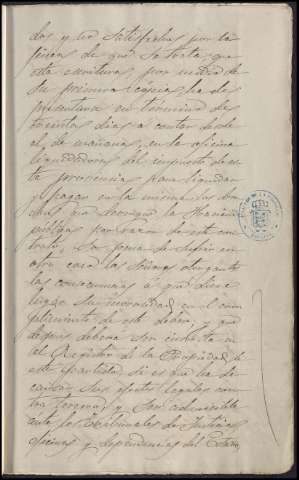 dos y no satisfechos por la
fincas de que se trata, que
esta escritura, por medio de
su primera copia, ha de
presentarse en término de
treinta dias a contar desde
el de mañana, en la oficina
liquidadora del impuesto de es-
ta provincia para liquidar
y pagar en la misma los
que devengue la Hacienda
pública por razon de este con-
trato, so pena de sufrir en
otro caso las Señoras otorgantes
las consecuencias a que diere
lugar su morosidad en el cum-
plimiento de este deber, y que
despues deberá ser inscrita en
el Registro de la Propiedad de
este partido si es que ha de
causar sus efectos legales con-
tra terceros y ser admisible
ante los Tribunales de Justicia,
oficinas y dependencias del Estado